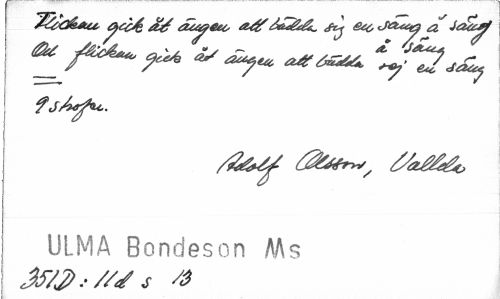 Flickan gick åt ängen att bädda sig en säng å säng
Od flickan gick åt ängen att bädda sej en säng
å säng
9 strofer.
Adolf Olsson, Vallda
ULMA Bondeson Ms
351D : 11d s 13